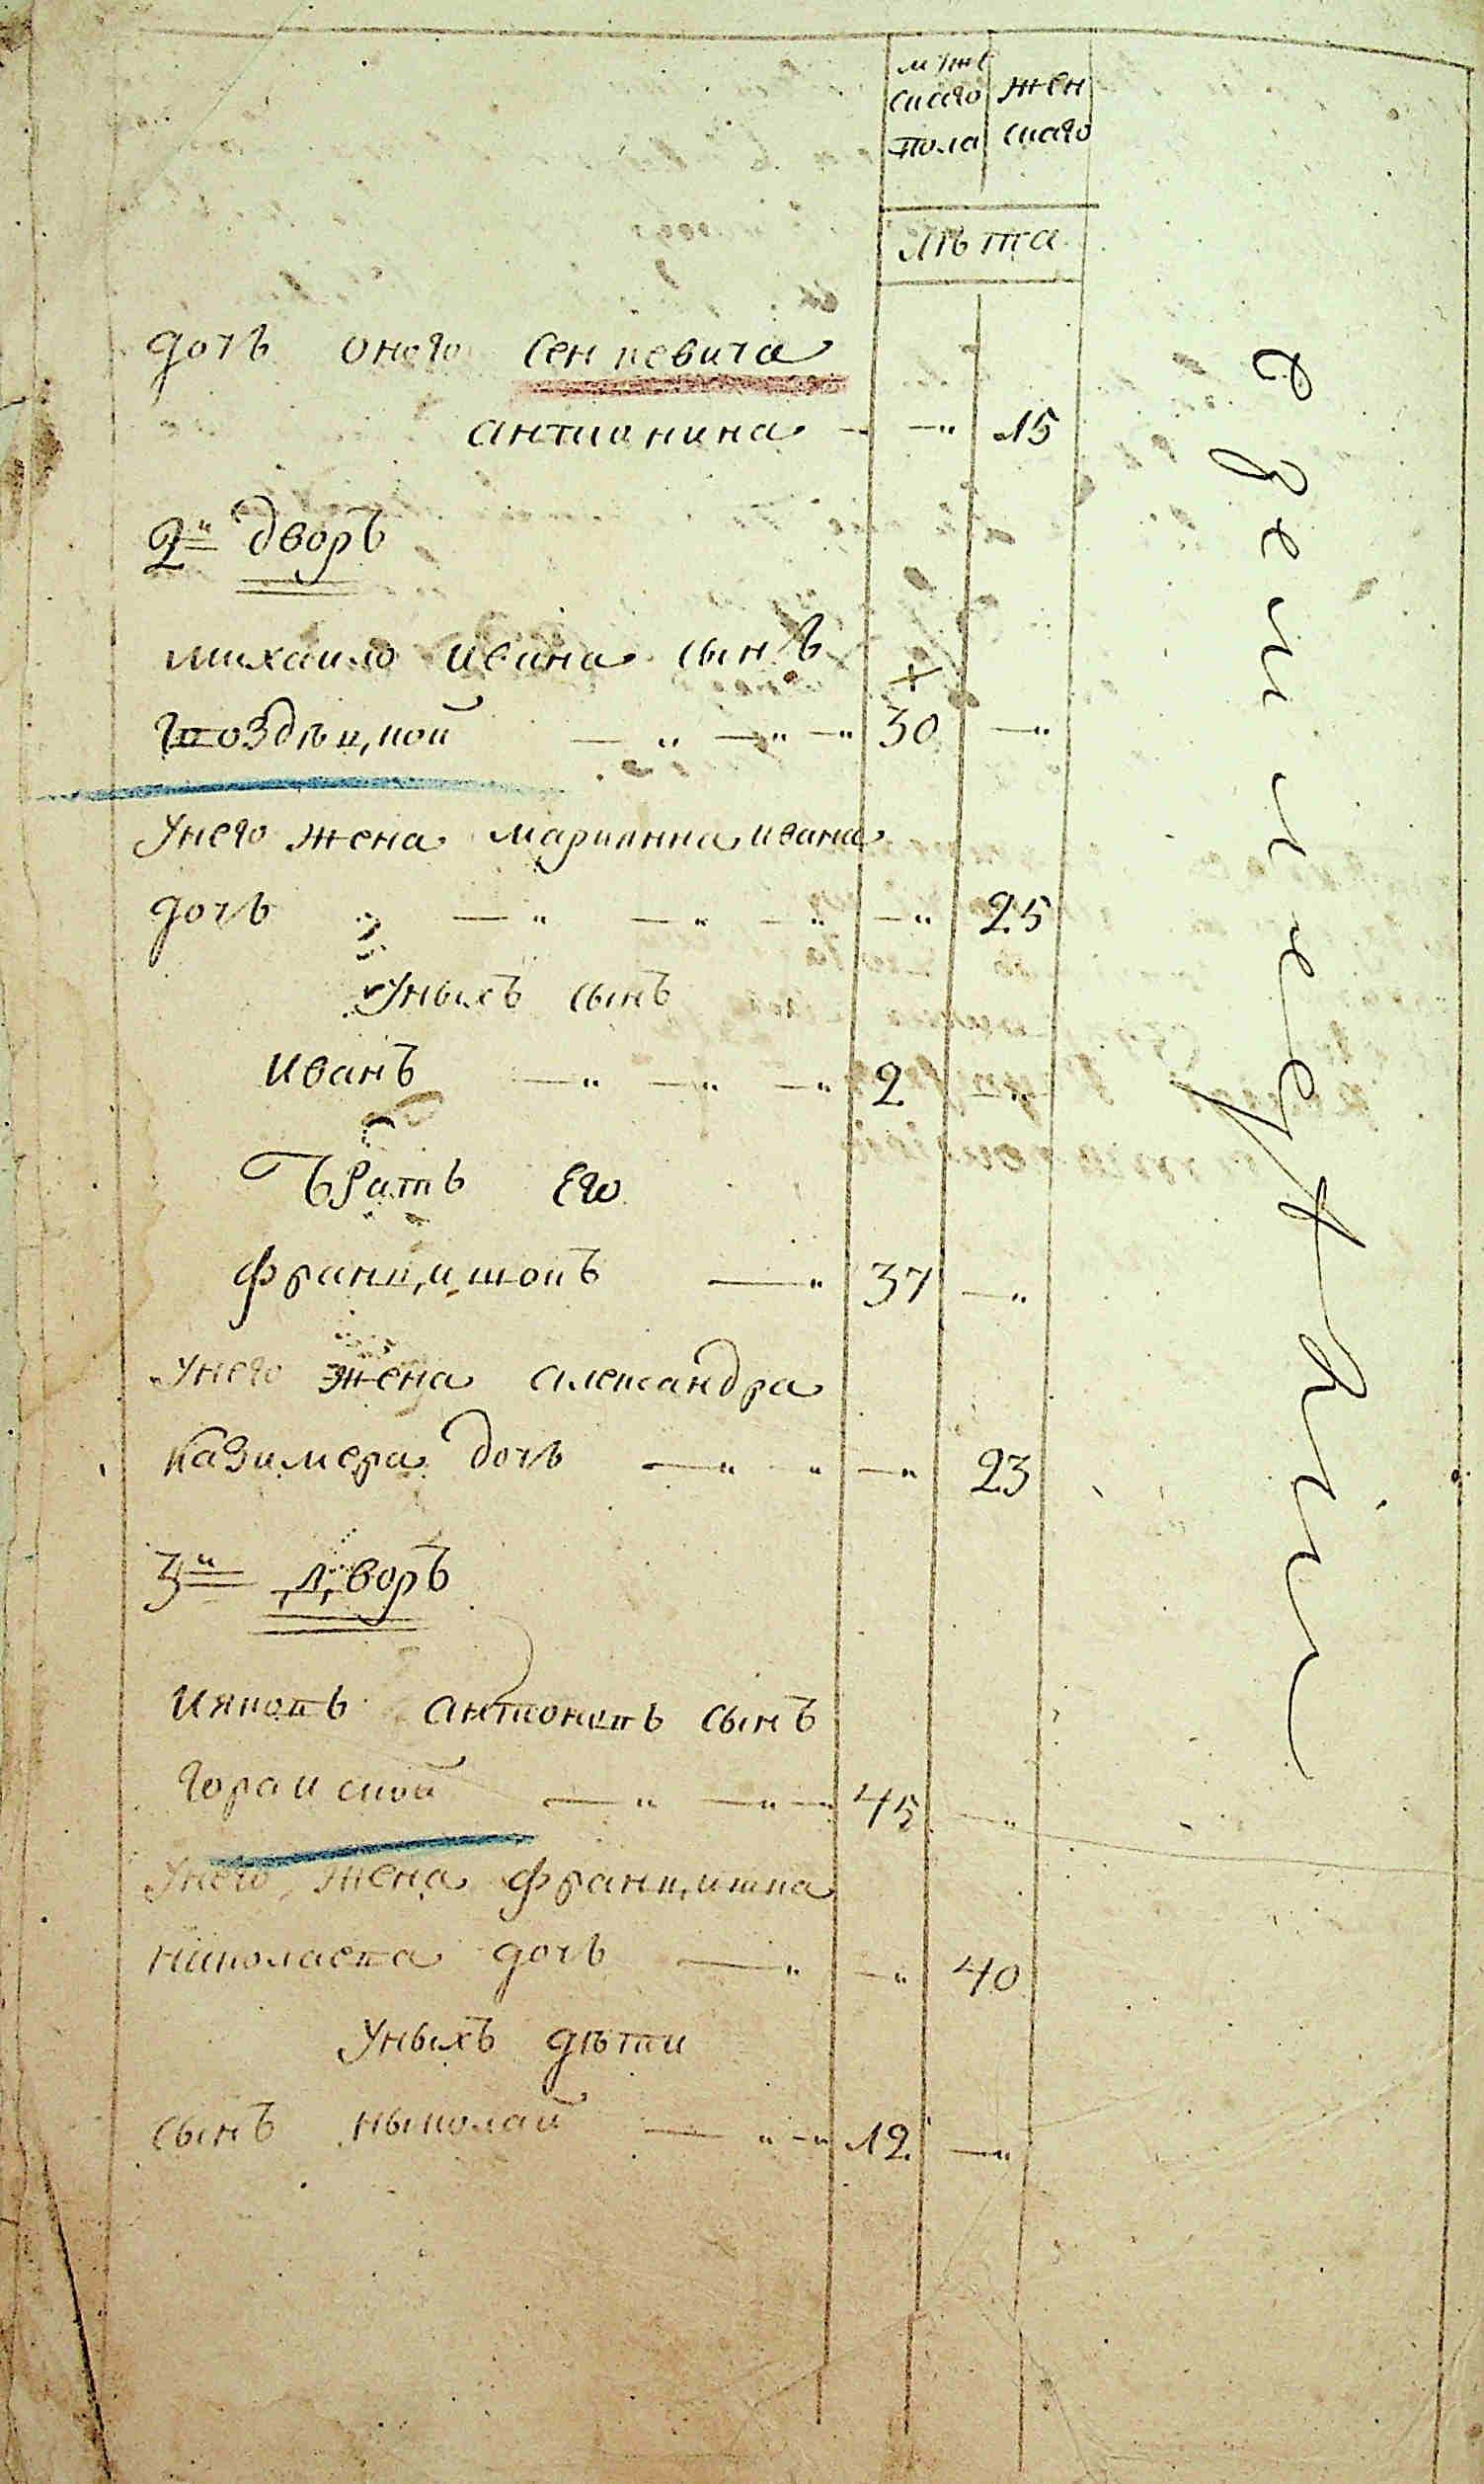 мужескаго пола
женскаго
лѣта
дочь оного Сенкевича
антионина 15
2й дворъ
михаило ивана сынъ
Гвоздѣцкой 30
унего жена марианна ивана
дочь 25
уныхъ сынъ
иванъ 2
братъ его
францишокъ 37
унего жена александра
казимера дочь 23
3й дворъ
антоновъ сынъ
гораиской 45
унего жена францишка
николаева дочь 40
уныхъ дѣти
сынъ ныколаи 12